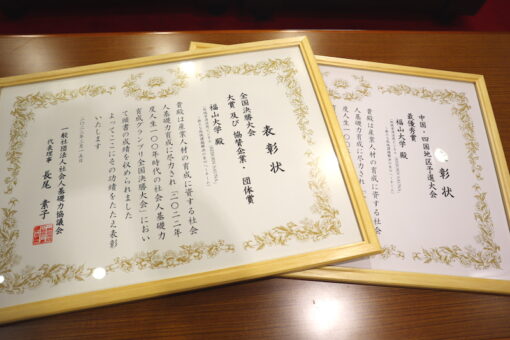 表彰状
全国決勝大会
大賞及び協賛企業・団体賞
福山大学 殿
貴殿は産業人材の育成に資する社会
人基礎力育成に尽力され「二〇二二年
度人生一〇〇年時代の社会人基礎力
育成グランプリ全国決勝大会」におい
て頭書の成績を収められました
よってここにその功績をたたえ表彰
いたします
一般社団法人社会人基礎力協議会
代表理事 長尾 素子
彰状
中国・四国地区予選大会
最優秀賞
福山大学 殿
貴殿は産業人材の育成に資する社会
人基礎力育成に尽力され
度人生一〇〇